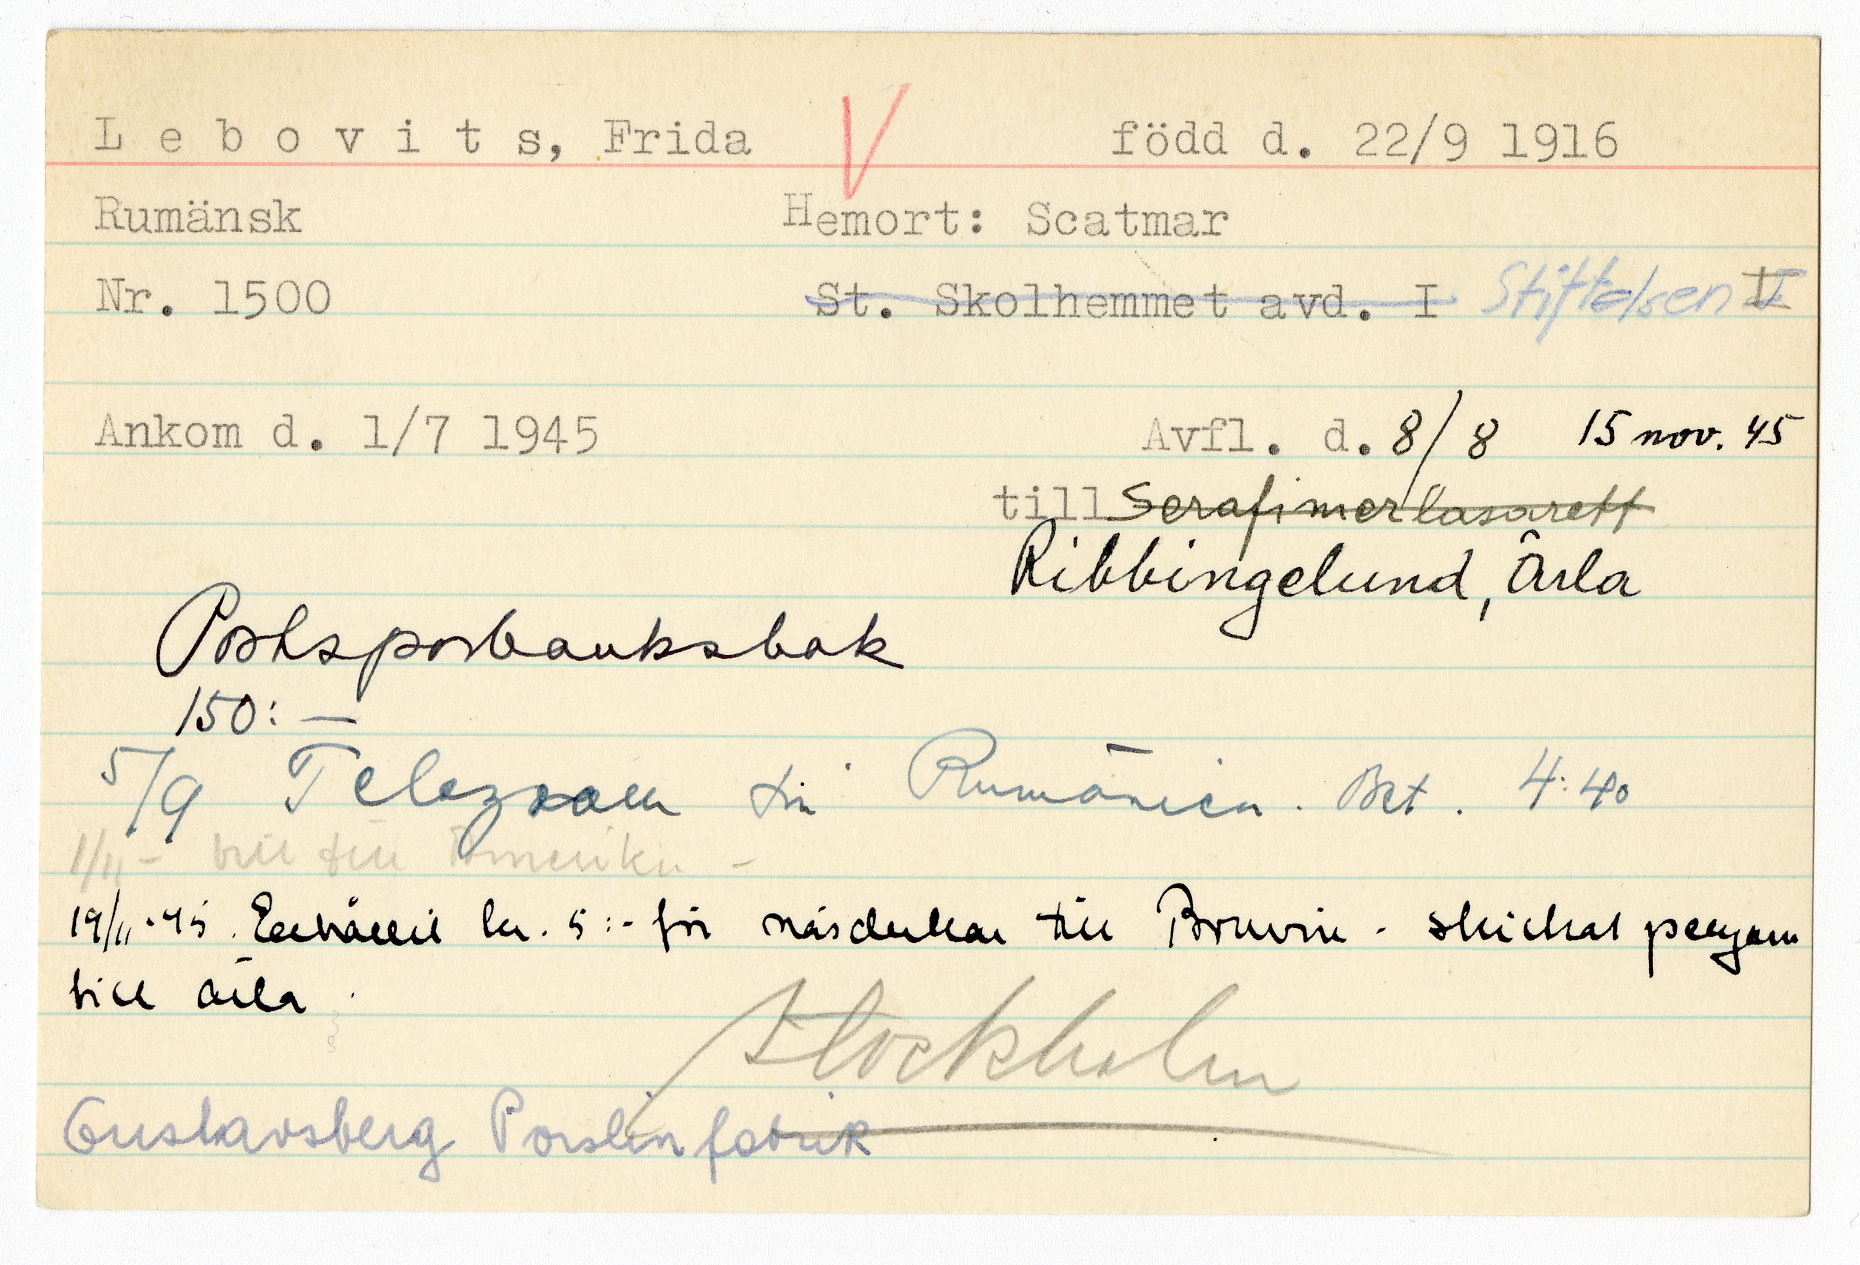 Lebovits, Frida V född d. 22/9 1916
Rumänsk Hemort: Scatmar
Nr. 1500 St. Skolhemmet avd. I Stiftelsen II
Ankom d. 1/7 1945 Avfl. d. 8/8 15 nov. 45
till Serafimerlasarett
Ribbingelund, Ärla
Postsparbanksbok
150:—
5/9 Telegram till Rumänien. Bet. 4:40
1/11 - till Amerika -
19/11-45. Erhållit kr. 5:- för näsdukar till - skickat pengarna
till Ärla.
Stockholm
Gustavsberg Porslinfabrik